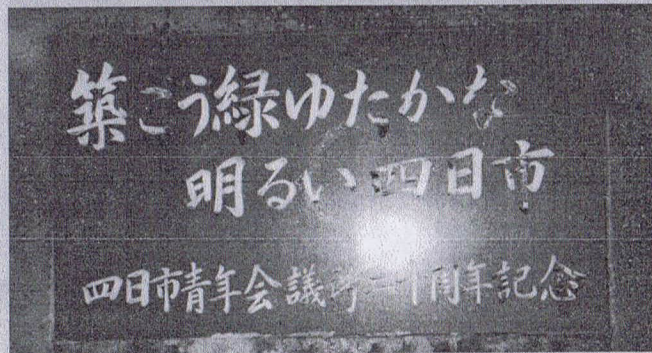 築こう緑ゆたかな
明るい四日市
四日市青年会議所二十周年記念